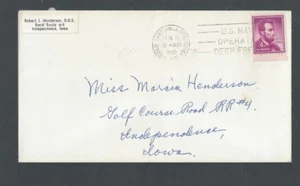 Robert J. Henderson, D.D.S.
Rural Route #4
Independence, Iowa
U.S. NAV
OPERAT
DEEP FRE
Miss Marcia Henderson
Golf Course Road RR #4
Independence,
Iowa.